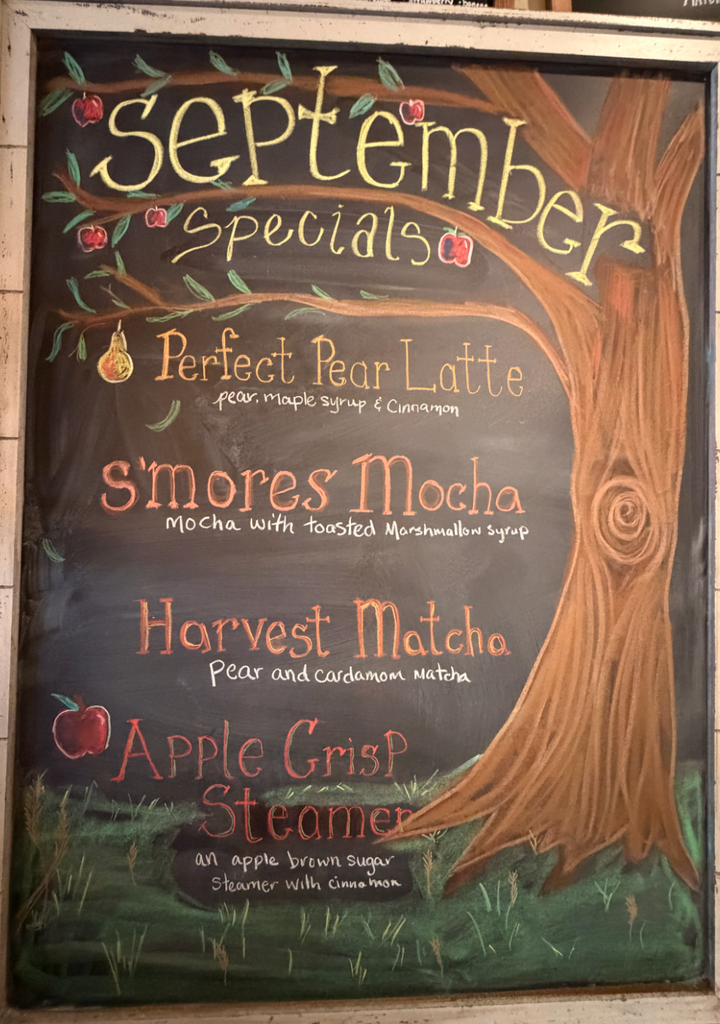 September
Specials
Perfect Pear Latte
pear, maple syrup & Cinnamon
S'mores Mocha
Mocha with toasted Marshmallow syrup
Harvest Matcha
Pear and cardamom Matcha
Apple Crisp
Steamer
an apple brown sugar
Steamer with cinnamon